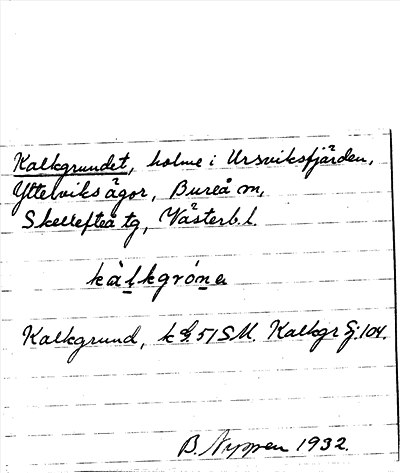 Kalkgrundet, holme i Ursviksfjärden,
Ytterviks ägor, Bureå m,
Skellefteå tg, Västerb. l.
kàlkgróne
Kalkgrund, k bl. 51 SM. Kalkgr Gj. 104.
B. Nyppen 1932.